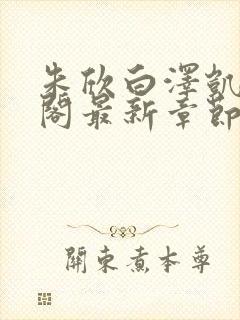 朱欣白澤凱
閣最新章節
關東煮本尊